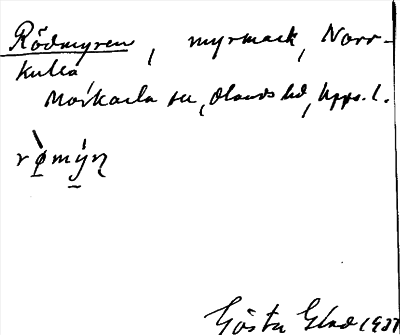 Rödmyren, myrmark, Norr-
kulla,
Morkarla sn, Olands hd, Upps. l.
Gösta Glad